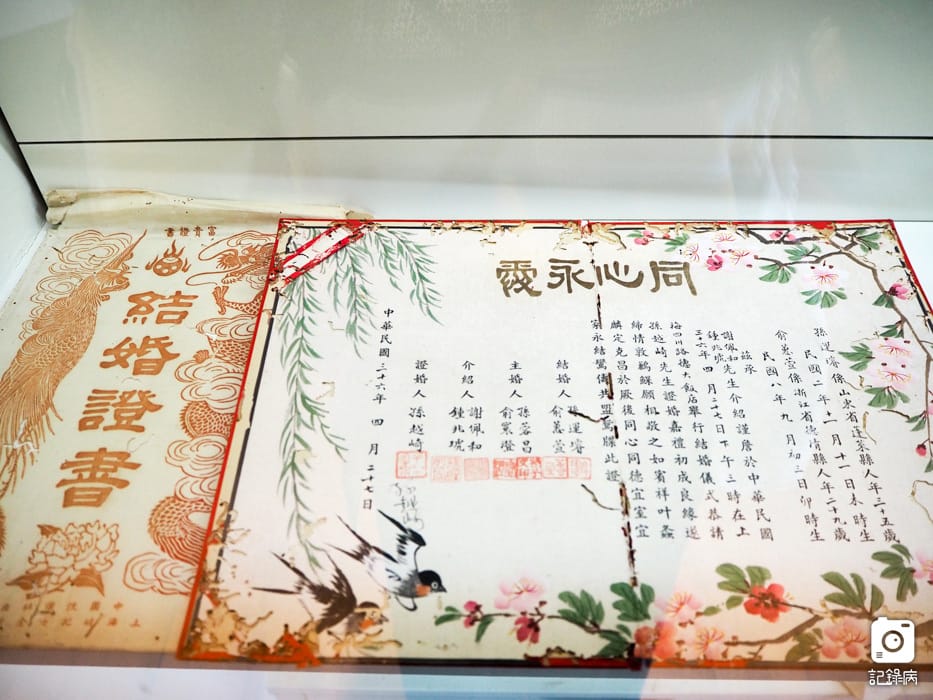 富貴證書
結婚證書
同心永愛
孫運璿係山東省蓬萊縣人年三十五歲
民國二年十一月十一日未時生
俞蕙萱係浙江省德清縣人年二十九歲
民國八年九月初三日卯時生
茲承
謝佩和
鍾兆琥先生介紹謹詹於中華民國
三十六年四月二十七日下午三時在上
海四川路揚子飯店舉行結婚儀式恭請
孫越崎先生證婚嘉禮初成良緣遂
締情敦鶼鰈願相敬之如賓祥叶螽
麟定克昌於厥後同心同德宜室宜
家永結鸞儔共盟鴛牒此證
結婚人 孫運璿
俞蕙萱
主婚人 孫蓉昌
俞 澄
介紹人 謝佩和
鍾兆琥
證婚人 孫越崎
中華民國三十六年四月二十七日
記錄病